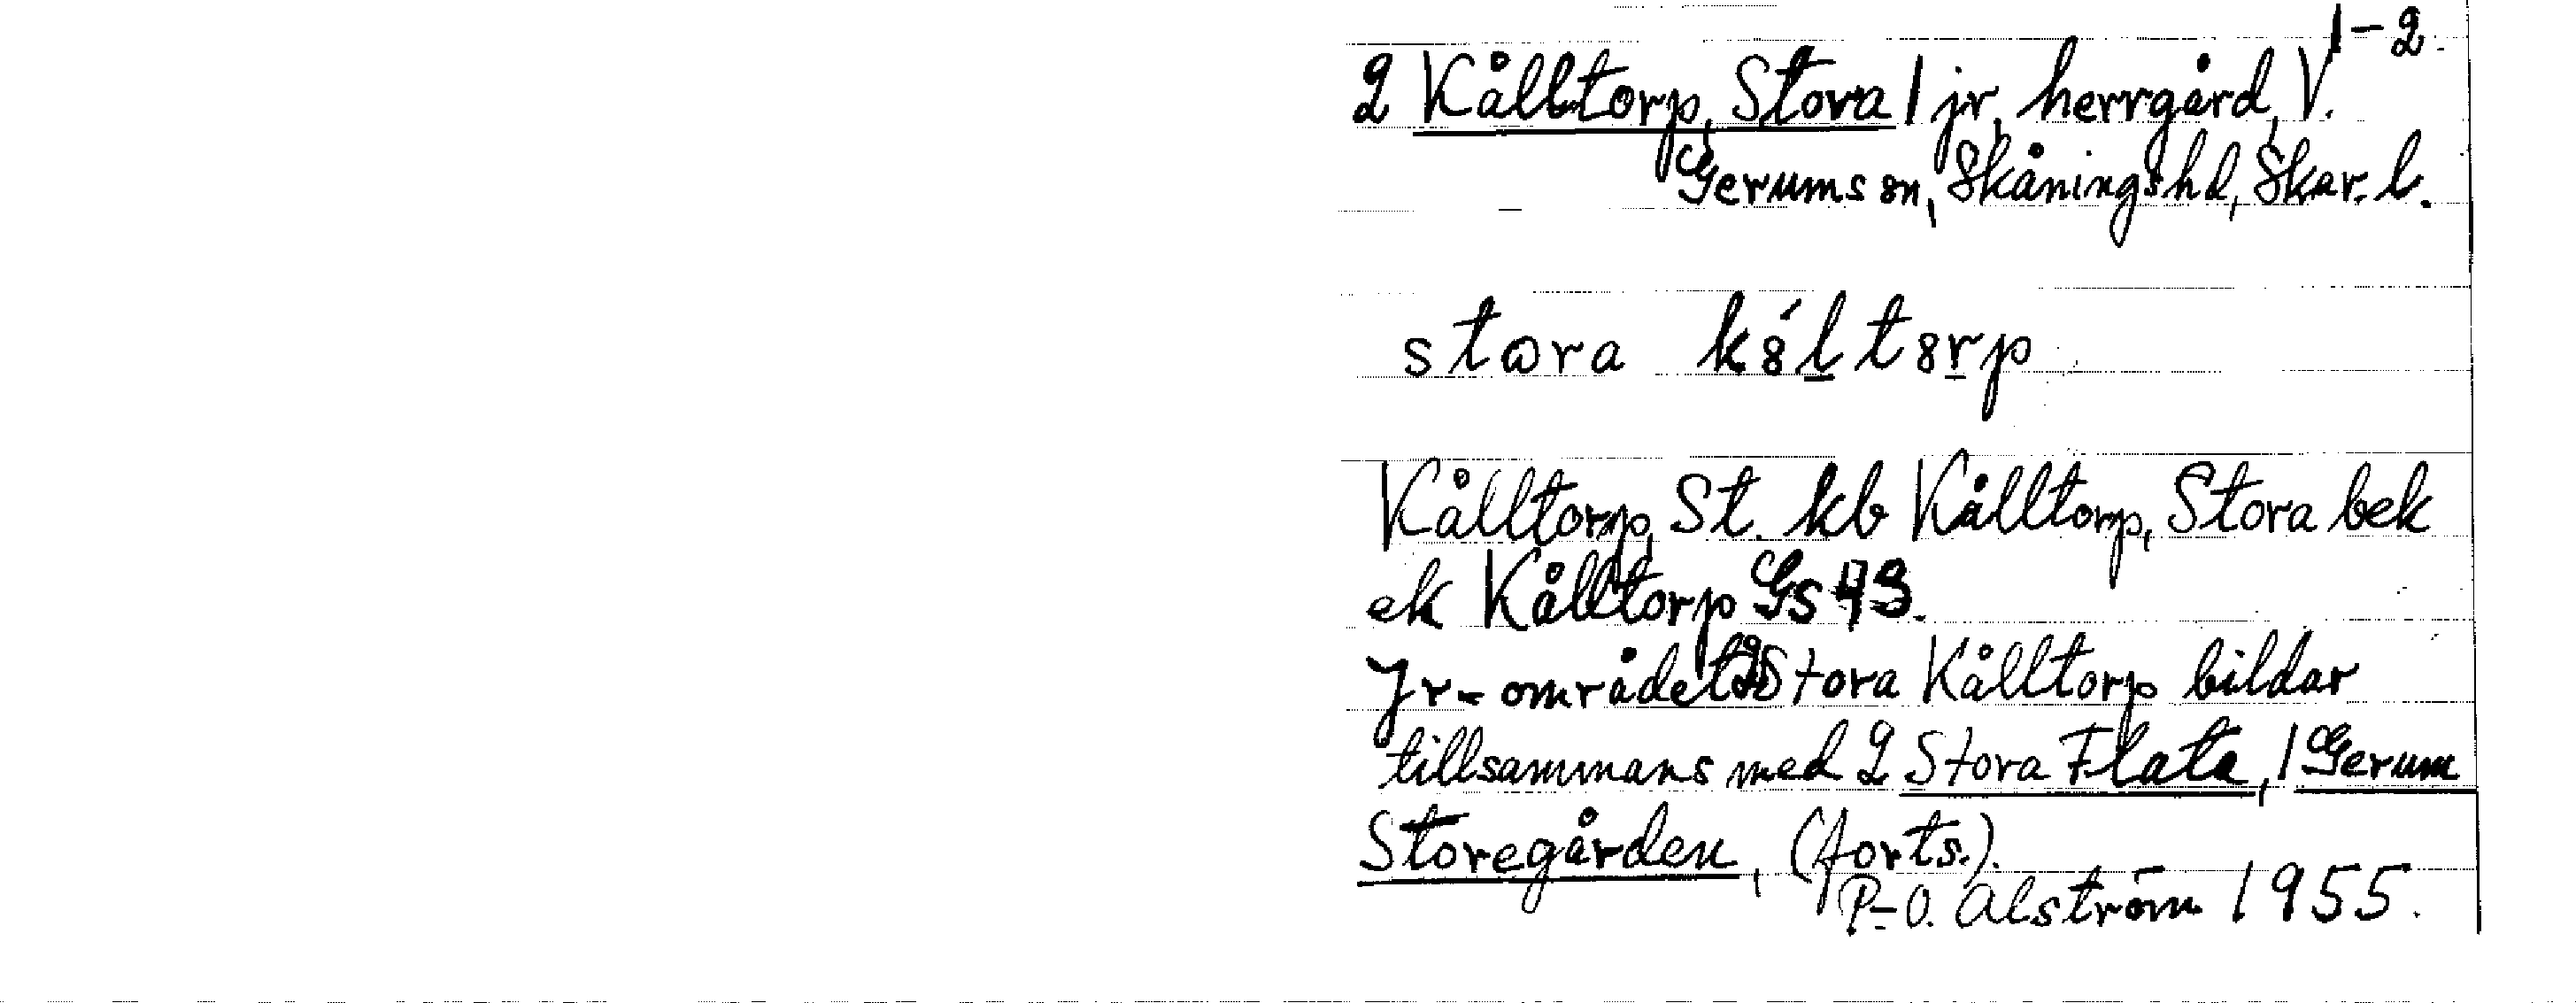 1-2.
2 Kålltorp, Stora 1 jr, herrgård, V.
Gerums sn, Skånings hd, Skar. l.
stora kål torp
Kålltorp, St. kb Kålltorp, Stora bek
ek Kålltorp Gs 43.
Jr-området 2 Stora Kålltorp bildar
tillsammans med 2 Stora Flata, 1 Gerum
Storegården, (forts.).
P-O. Alström 1955.